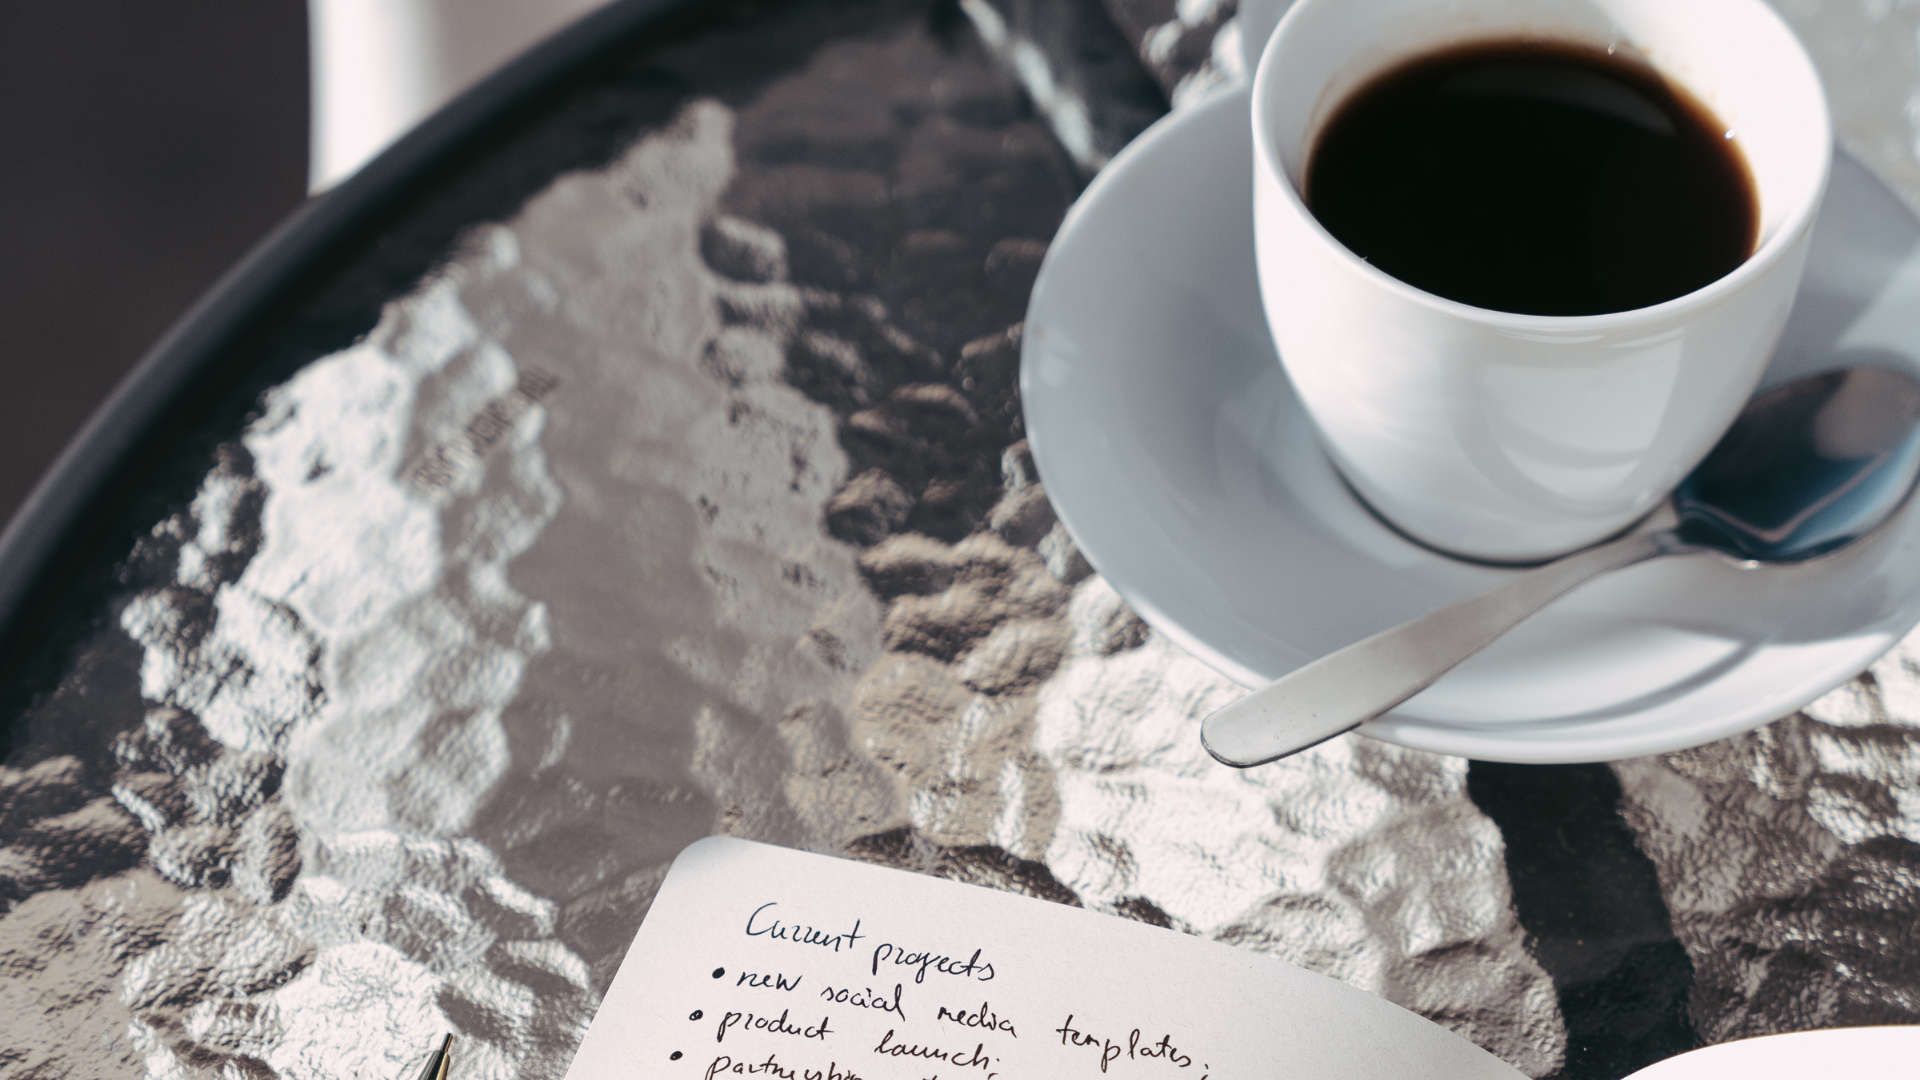 Current projects
• new social media templates;
• product launch;
• partnership